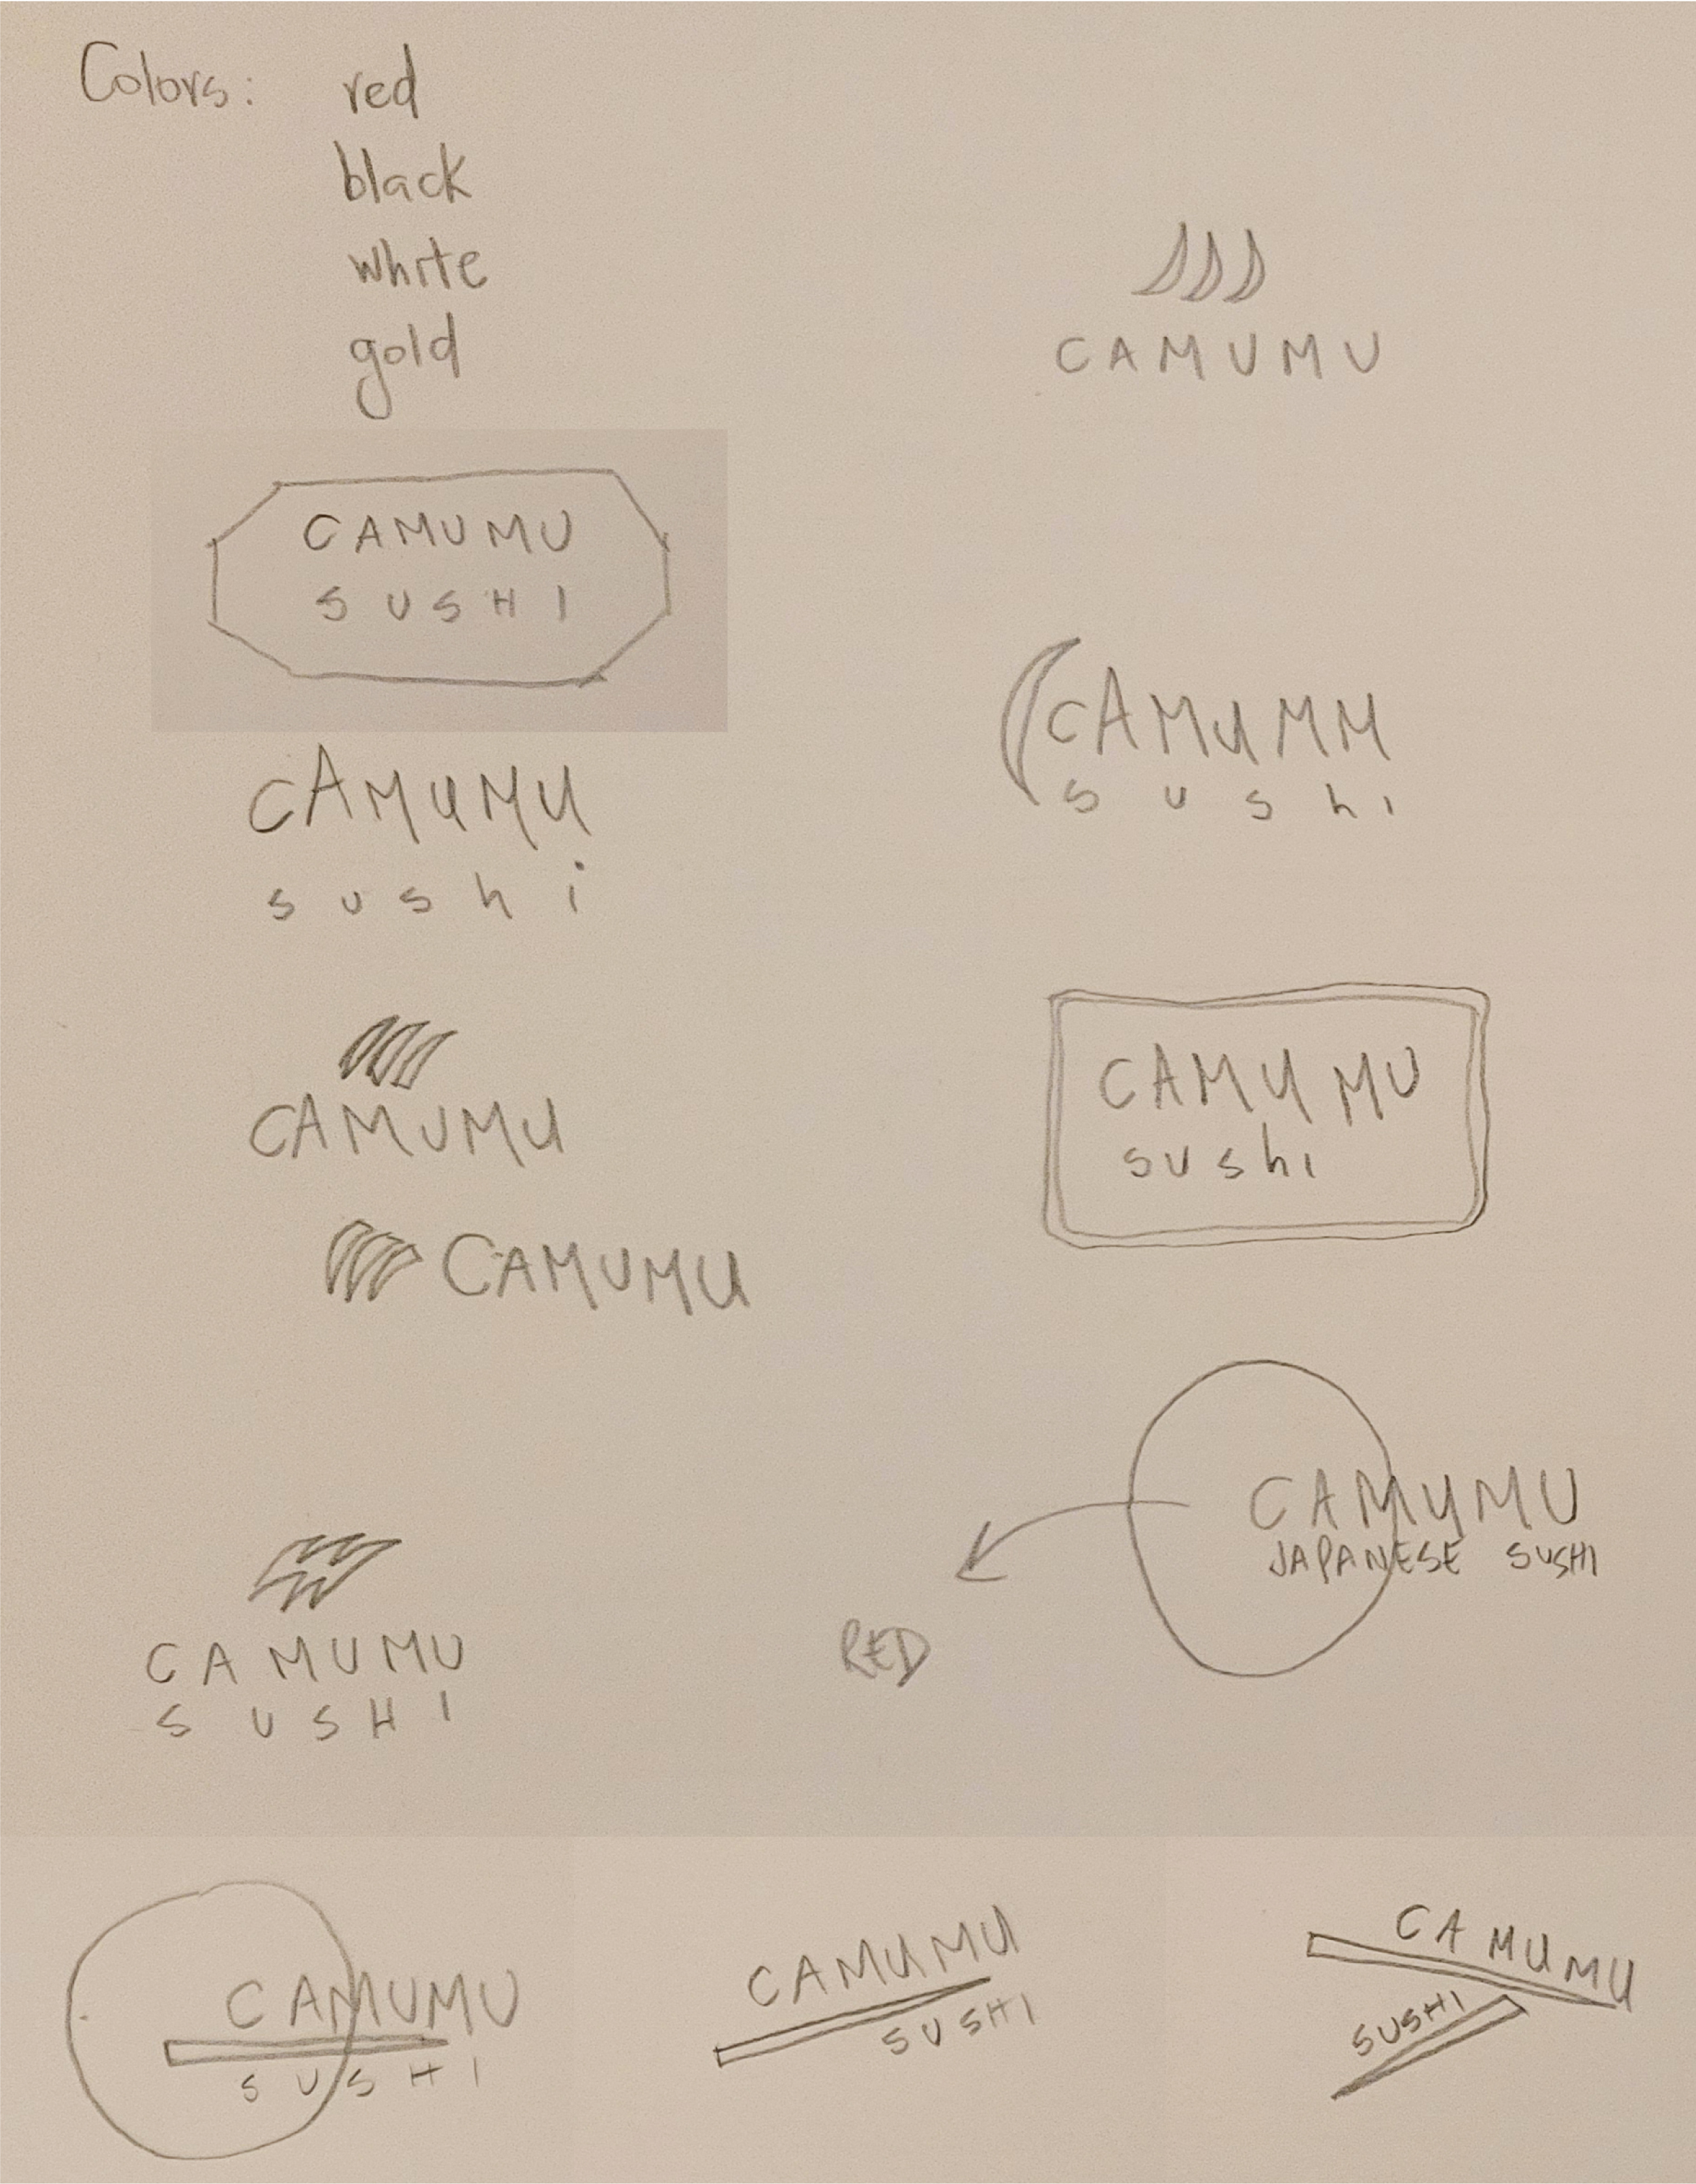 Colors: red
black
white
gold
CAMUMU
CAMUMU
SUSHI
CAMUMM
sushi
CAMUMU
sushi
CAMUMU
CAMUMU
sushi
CAMUMU
CAMUMU
JAPANESE SUSHI
RED
CAMUMU
SUSHI
CAMUMU
SUSHI
CAMUMU
SUSHI
CAMUMU
SUSHI